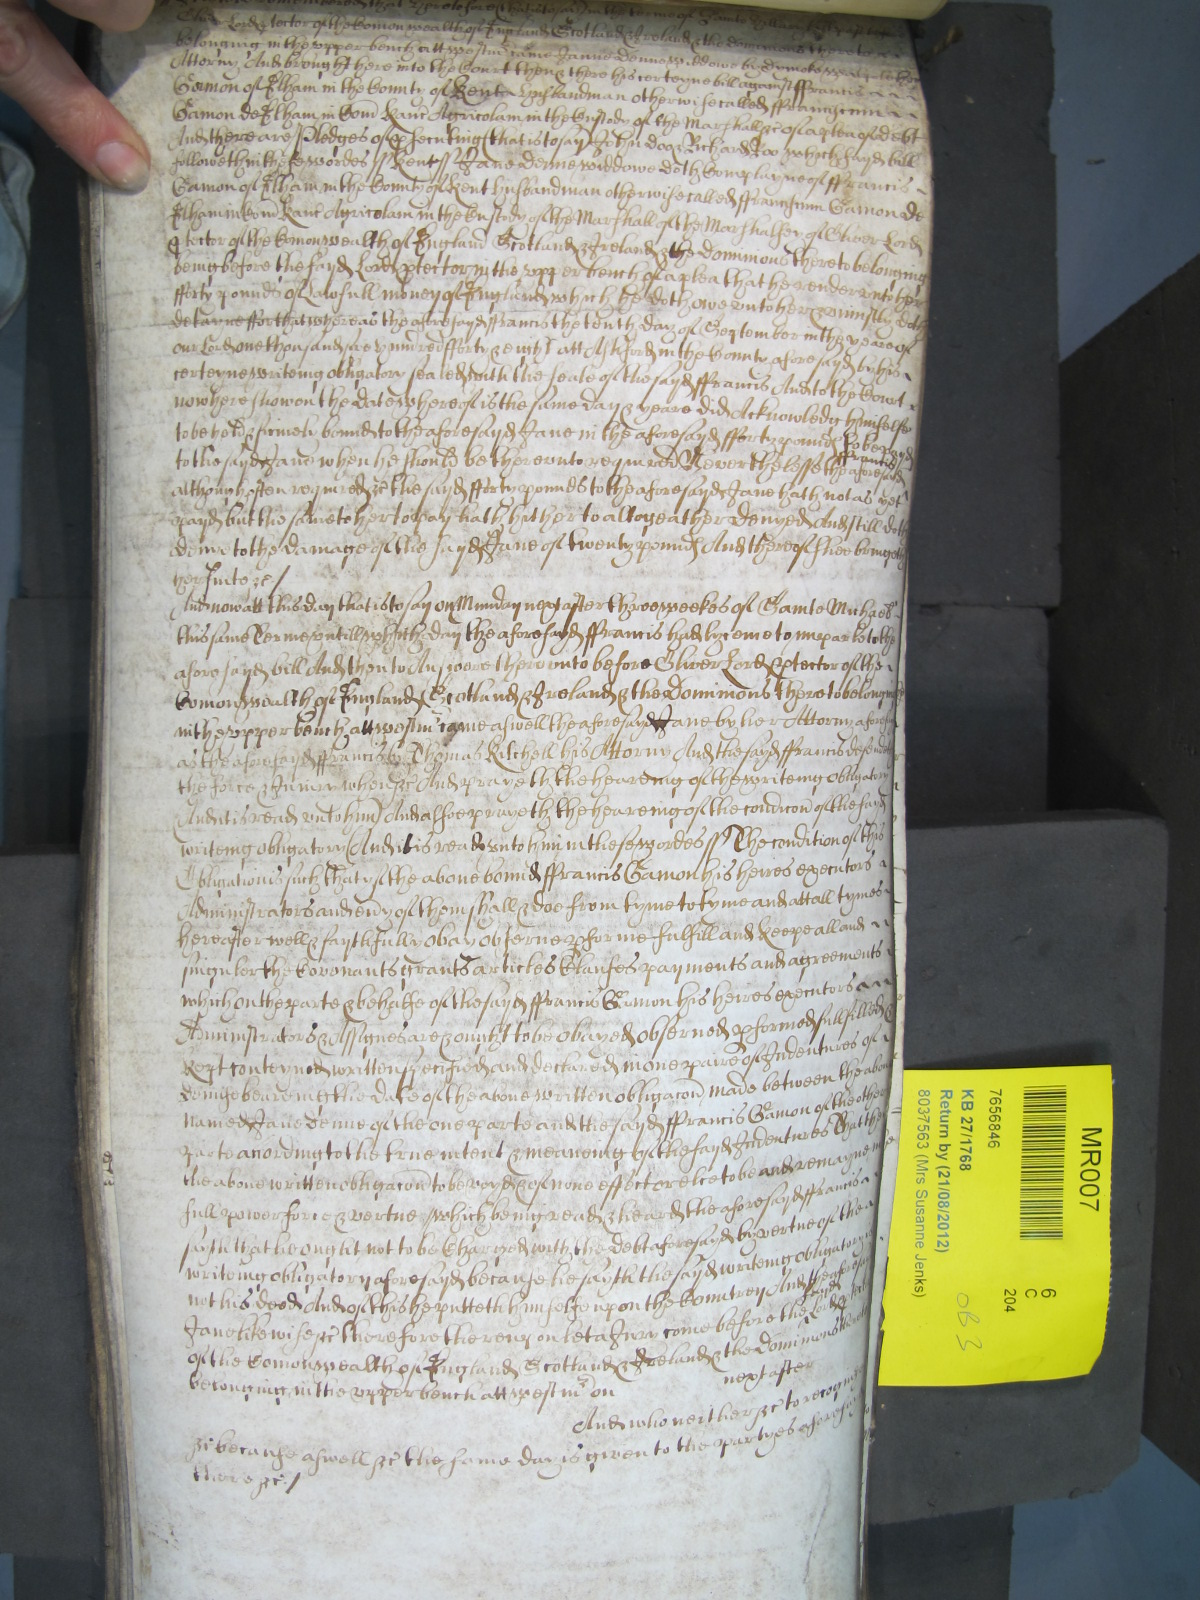 Oliver Lord Protector of the Comonwealth of England Scotland & Ireland & the dominions thereto
belonging in the upper bench att Westmr came Jane Denne widdowe by
Attorny And brought here into the Court then & there his certeyne bill against ffrancis
Gamon of Elham in the County of Kent husbandman otherwise called ffranciscum
Gamon de Elham in Com Kanc Agricolam in the Custody of the Marshall &c of a plea of debt
And there are Pledges of psecuting that is to say John doo & Richard Roo which sayd bill
followeth in these wordes ss Kent ss Jane denne widdowe doth Complayne of ffrancis
Gamon of Elham in the County of Kent husbandman otherwise called ffranciscum Gamon de
Elham in Com Kanc Agricolam in the Custody of the Marshall of the Marshalsey of Oliver Lord
Ptector of the Comonwealth of England Scotland & Ireland & the dominions thereto belonging
being before the sayd Lord Ptector in the upper bench of a plea that he render unto her
fforty pounds of lawfull money of England which he doth owe unto her & uniustly doth
detayne ffor that whereas the aforesayd ffrancis the tenth day of September in the yeare of
our Lord one thousand six hundred fforty & eight att Ashford in the County aforesayd by his
certeyne writeing obligatory sealed with the seale of the sayd ffrancis And to the Court
now here showen the date whereof is the same day & yeare did Acknowledg himselfe
to be held & firmely bound to the aforesayd Jane in the aforesayd fforty pounds to be payd
to the sayd Jane when he should be thereunto required Neverthelesse the aforesayd ffrancis
although often required &c the sayd fforty pounds to the aforesayd Jane hath not as yet
payd but the same to her to pay hath hitherto altogeather denyed And still doth
deny to the damage of the sayd Jane of twenty pounds And thereof shee bringeth
her suite &c /
And now att this day that is to say on Munday next after three weekes of Sainte Michaell
this same Terme untill which day the aforesayd ffrancis had lycence to imparle to the
aforesayd bill And then to Answere thereunto before Oliver Lord Ptector of the
Comonwealth of England Scotland & Ireland & the Dominions thereto belonging
in the upper bench att Westmr came aswell the aforesayd Jane by her Attorny aforesayd
as the aforesayd ffrancis by Thomas Kitchell his Attorny And the sayd ffrancis defendeth
the force & Iniury when &c And prayeth the heareing of the writeing obligatory
And it is read unto him And alsoe prayeth the heareing of the condicon of the sayd
writeing obligatory And it is read unto him in these wordes ss The condition of this
Obligation is such That yf the above bound ffrancis Gamon his heires executors
Administrators and every of them shall & doe from tyme to tyme and att all tymes
hereafter well & faythfully obay observe pforme fulfill and keepe all and
singuler the Covenants grants articles Clauses payments and agreements
which on the parte & behalfe of the sayd ffrancis Gamon his heires executors
Administrators & Assignes are & ought to be obayed observed pformed fullfilled &
kept conteyned written specified and declared in one paire of Indentures of
demise beareing the date of the above written obligacon made between the above
named Jane Denne of the one parte and the sayd ffrancis Gamon of the other
parte according to the true intent & meaneing of the sayd Indentures That then
the above written obligacon to be voyd & of none effect or else to be and remayne in
full power force & vertue which being read & heard the aforesayd ffrancis
sayth that he ought not to be Charged with the debt aforesayd by vertue of the
writeing obligatory aforesayd because he sayth the sayd writeing obligatory is
not his deed And of this he putteth himself upon the Countrey And the aforesayd
Jane likewise &c therefore thereupon let a Jury come before the sayd Lord Ptector
of the Comonwealth of England Scotland & Ireland & the Dominions thereto
belonging in the upper bench att Westmr on next after
And who neither &c to recognize
&c because aswell &c the same day is given to the partyes aforesayd
there &c /
MR007
6
C
204
7656846
KB 27/1768
Return by (21/08/2012)
8037563 (Mrs Susanne Jenks)
OB 3